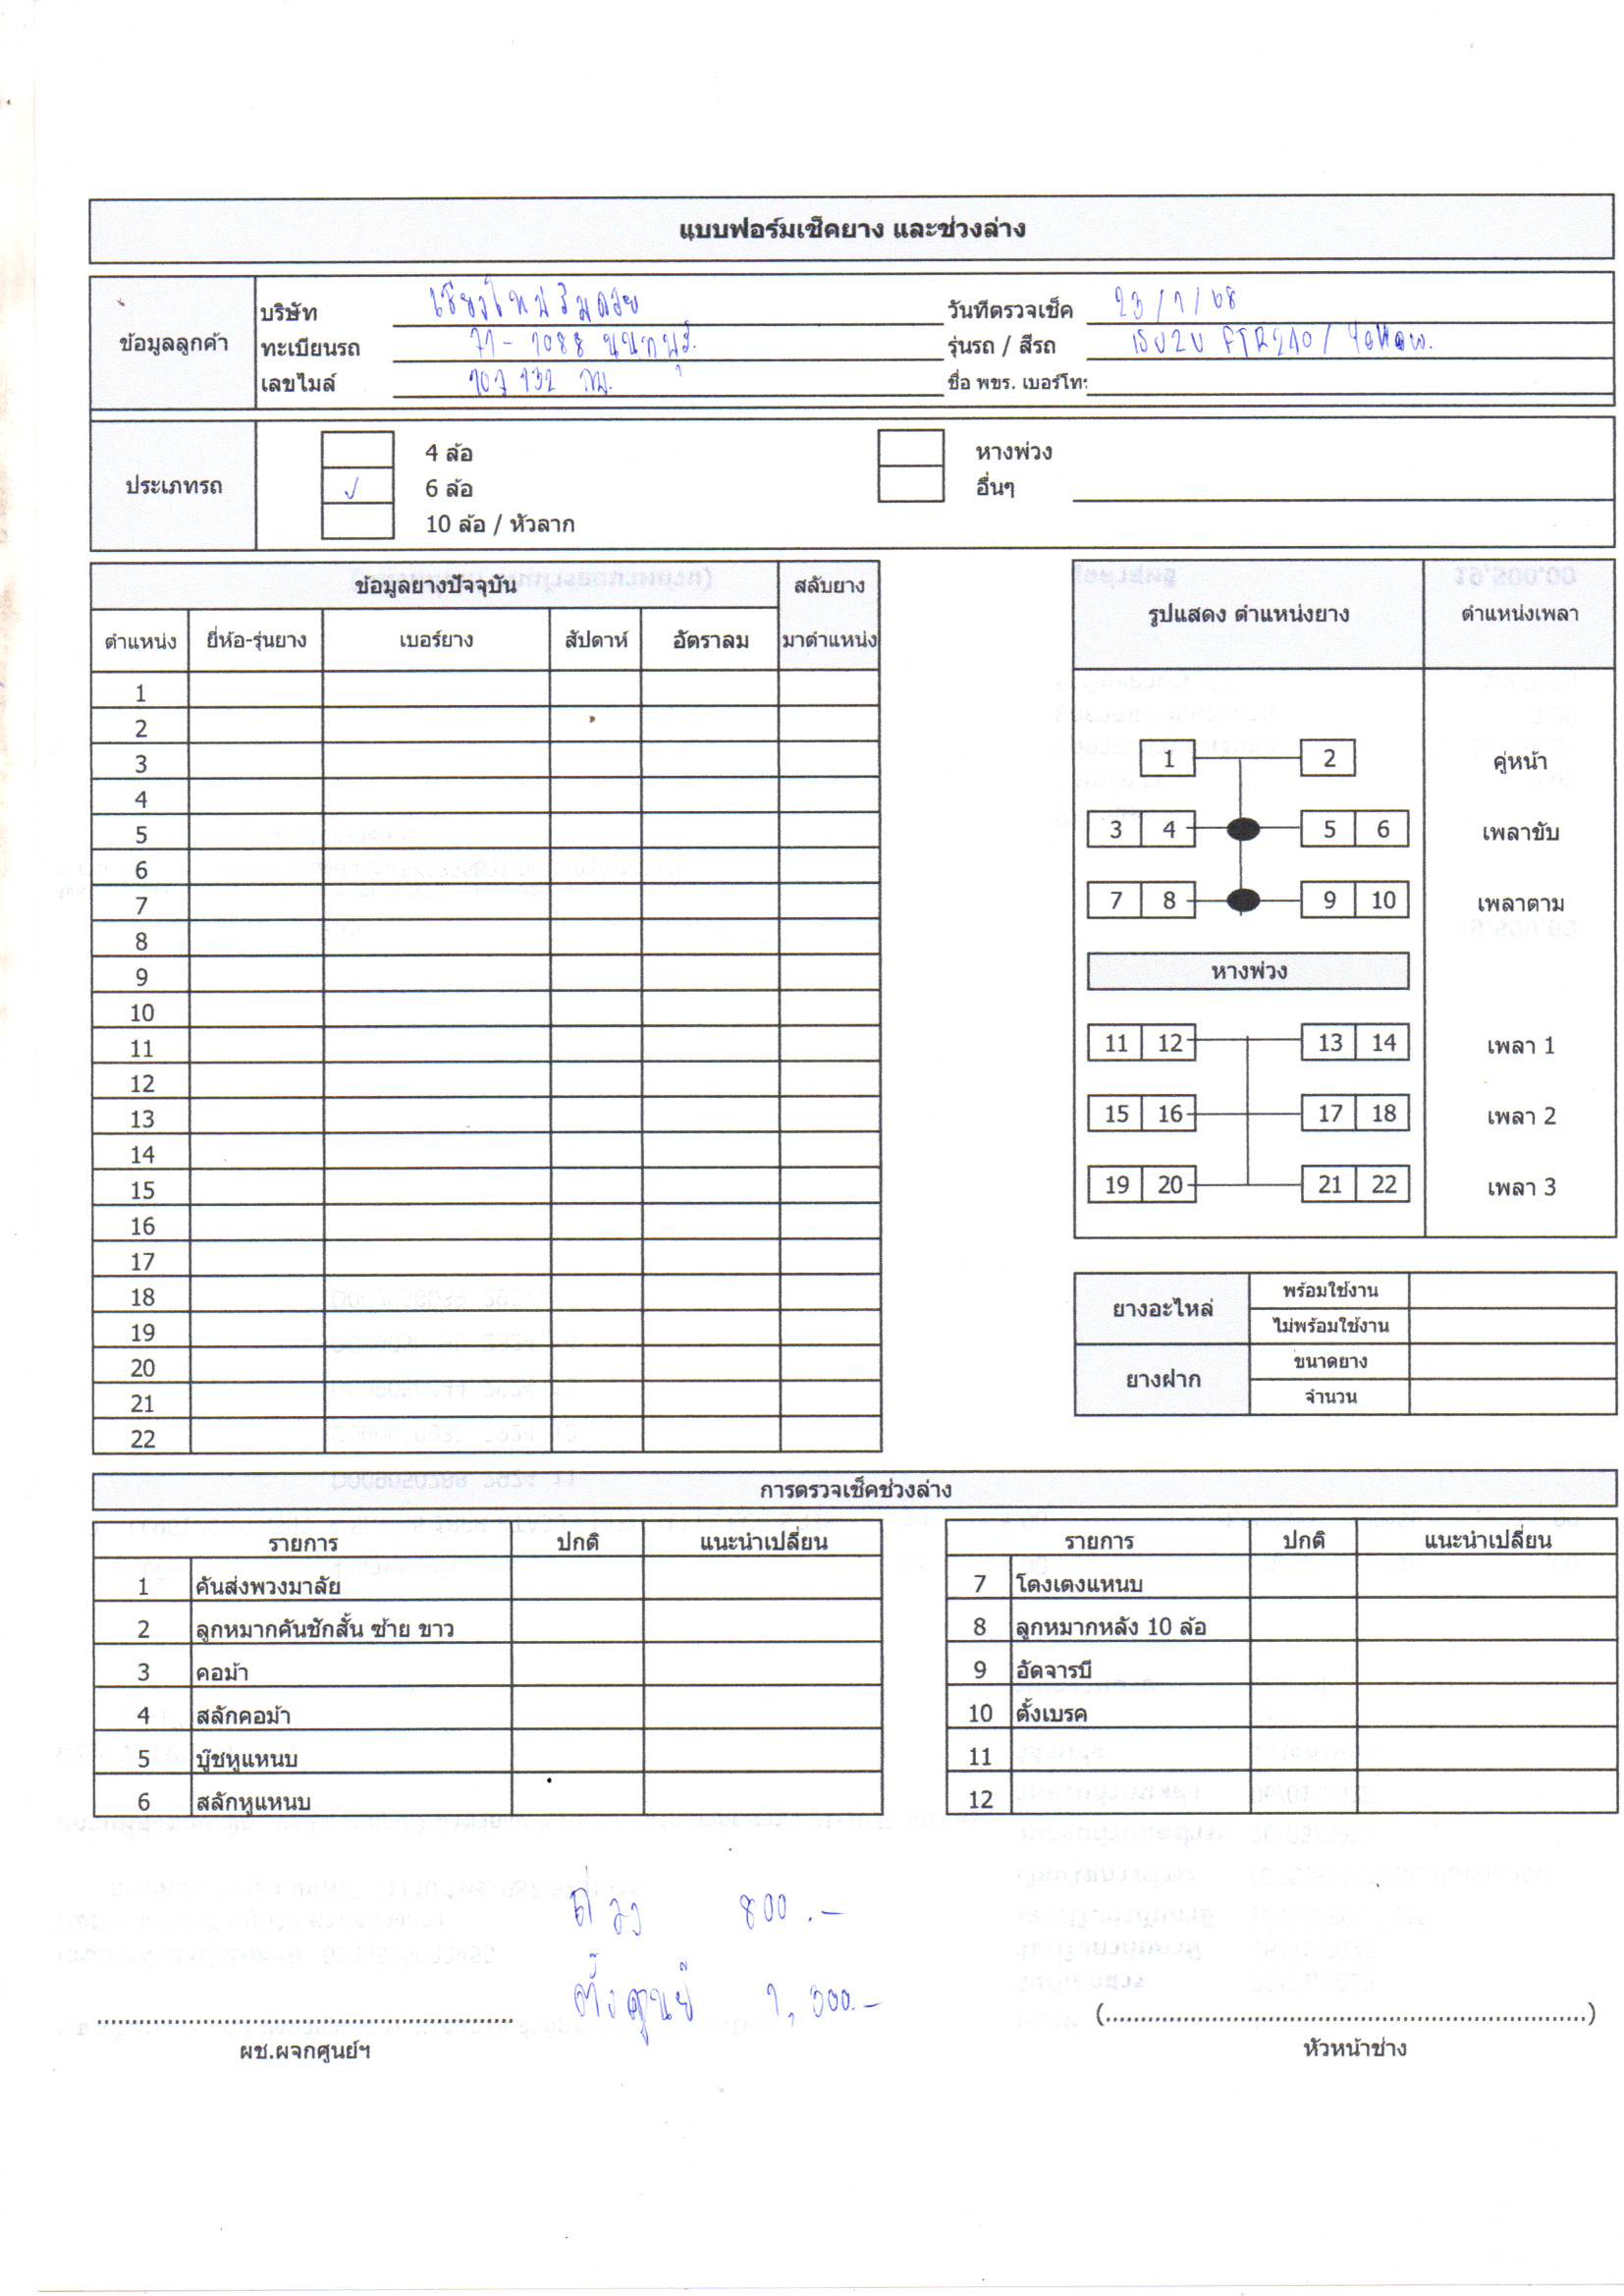 แบบฟอร์มเช็คยาง และช่วงล่าง
ข้อมูลลูกค้า
บริษัท เชียงใหม่ริมดอย
วันที่ตรวจเช็ค 23/1/68
ทะเบียนรถ 71-1088 นนทบุรี
รุ่นรถ / สีรถ ISUZU FTR240 / Yellow.
เลขไมล์ 107132 กม.
ชื่อ พขร. เบอร์โทร
ประเภทรถ
4 ล้อ
หางพ่วง
✓ 6 ล้อ
อื่นๆ
10 ล้อ / หัวลาก
ข้อมูลยางปัจจุบัน สลับยาง
ตำแหน่ง ยี่ห้อ-รุ่นยาง เบอร์ยาง สัปดาห์ อัตราลม มาตำแหน่ง
1
2
3
4
5
6
7
8
9
10
11
12
13
14
15
16
17
18
19
20
21
22
รูปแสดง ตำแหน่งยาง ตำแหน่งเพลา
1 2 คู่หน้า
3 4 5 6 เพลาขับ
7 8 9 10 เพลาตาม
หางพ่วง
11 12 13 14 เพลา 1
15 16 17 18 เพลา 2
19 20 21 22 เพลา 3
ยางอะไหล่ พร้อมใช้งาน
ไม่พร้อมใช้งาน
ยางฝาก ขนาดยาง
จำนวน
การตรวจเช็คช่วงล่าง
รายการ ปกติ แนะนำเปลี่ยน
1 คันส่งพวงมาลัย
2 ลูกหมากคันชักสั้น ซ้าย ขาว
3 คอม้า
4 สลักคอม้า
5 บู๊ชหูแหนบ
6 สลักหูแหนบ
รายการ ปกติ แนะนำเปลี่ยน
7 โตงเตงแหนบ
8 ลูกหมากหลัง 10 ล้อ
9 อัดจารบี
10 ตั้งเบรค
11
12
ถ่วง 800.-
ตั้งศูนย์ 1,300.-
ผช.ผจกศูนย์ฯ
(........................................................................)
หัวหน้าช่าง